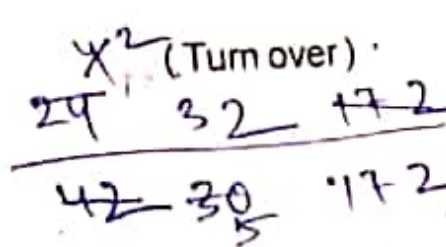 X² (Turn over)
24 32 172
42 30 172
5